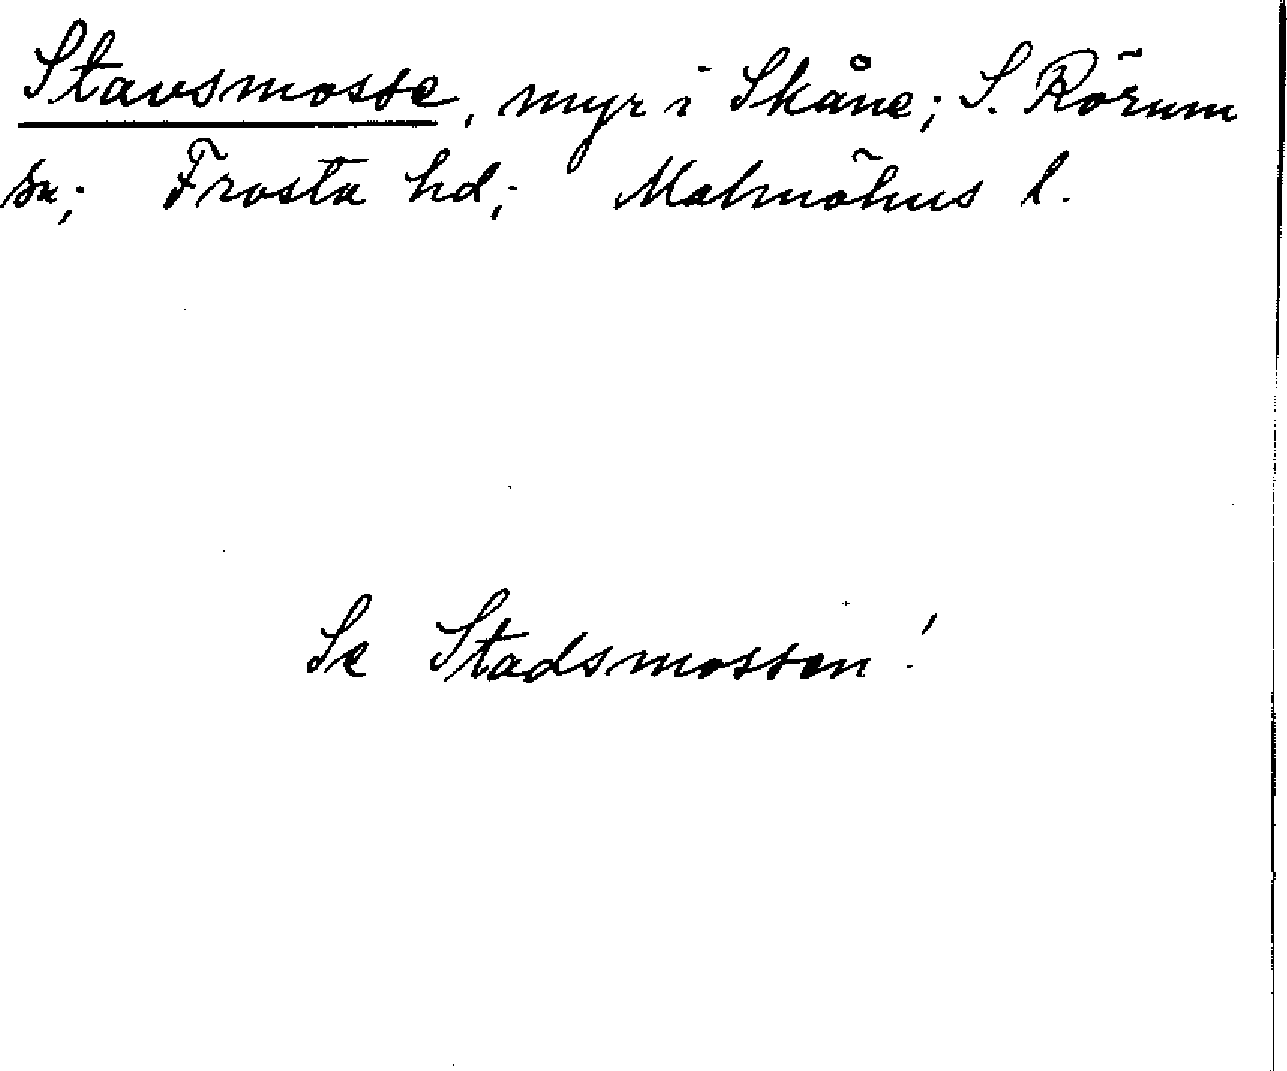 Stavsmosse, myr i Skåne; S. Rörum
sn; Frosta hd; Malmöhus l.
Se Stadsmossen!